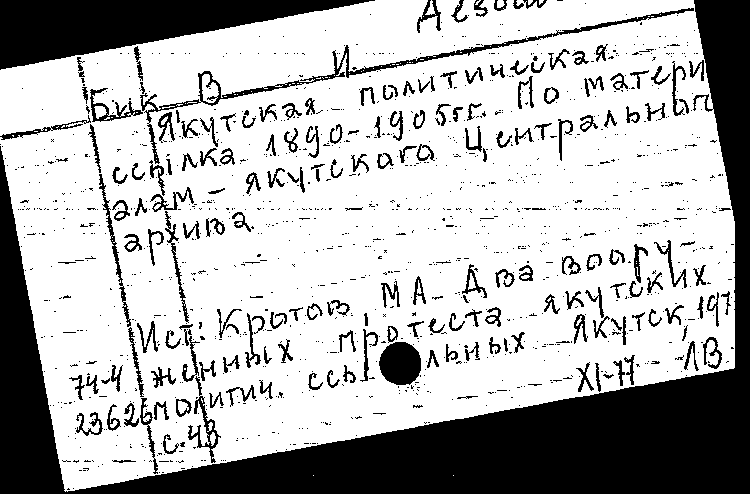 Бик В И.
Якутская политическая
ссылка 1890-1905гг. По матери
алам - якутского Центрального
архива
Ист: Кротов, М.А. Два воору-
женных протеста якутских
74-4
политич. ссыльных Якутск, 197
23626
с.43
XI-77 ЛВ